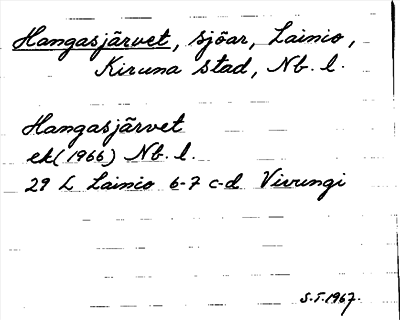 Hangasjärvet, sjöar, Lainio,
Kiruna stad, Nb. l.
Hangasjärvet
ek (1966) Nb. l.
29 L Lainio 6-7 c-d Vivungi
S.T. 1967.